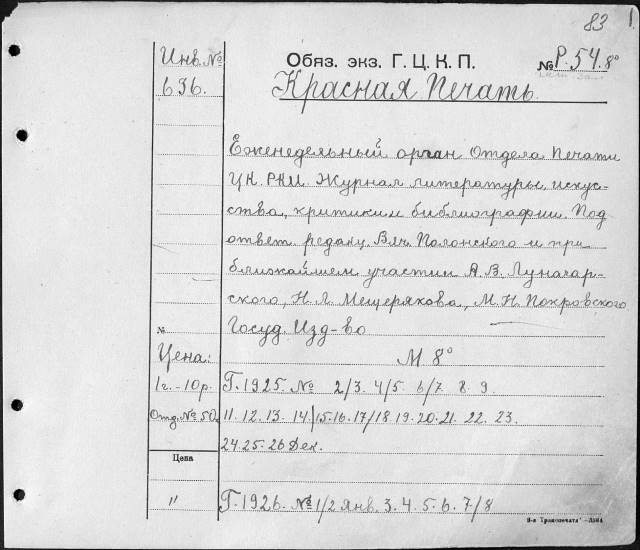 83 1.
Инв. №
636.
Обяз. экз. Г. Ц. К. П.
№ Р.54. 8º
Красная Печать.
Еженедельный орган Отдела Печати
ЦК. РКП. Журнал литературы, искус-
ства, критики и библиографии. Под
ответ. редакц. Вяч. Полонского и при
ближайшем участии А. В. Луначар-
ского, Н. Л. Мещерякова, М. Н. Покровского
Госуд. Изд-во
№
Цена:
М 8º
1 г. - 10 р.
Г. 1925. № 2/3. 4/5. 6/7. 8. 9.
Отд. № 50.
11. 12. 13. 14. 15. 16. 17/18 19. 20. 21. 22. 23.
24. 25. 26 Дек.
Цена
"
Г. 1926. № 1/2 Янв. 3. 4. 5. 6. 7/8